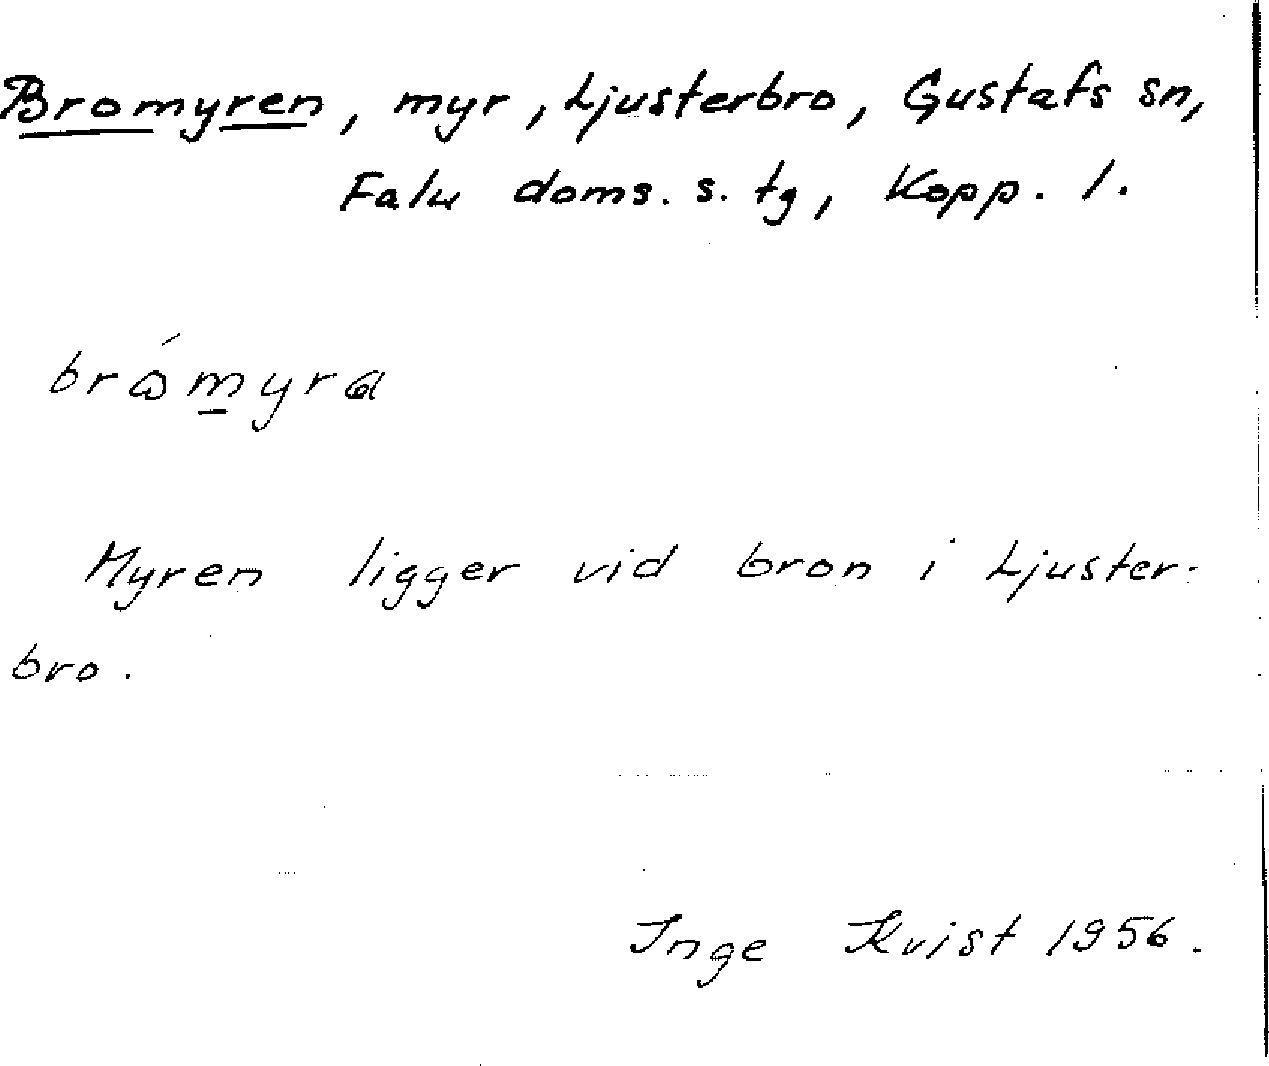 Bromyren, myr, Ljusterbro, Gustafs sn,
Falu doms. s. tg, Kopp. l.
bròmyra
Myren ligger vid bron i Ljuster-
bro.
Inge Kvist 1956.